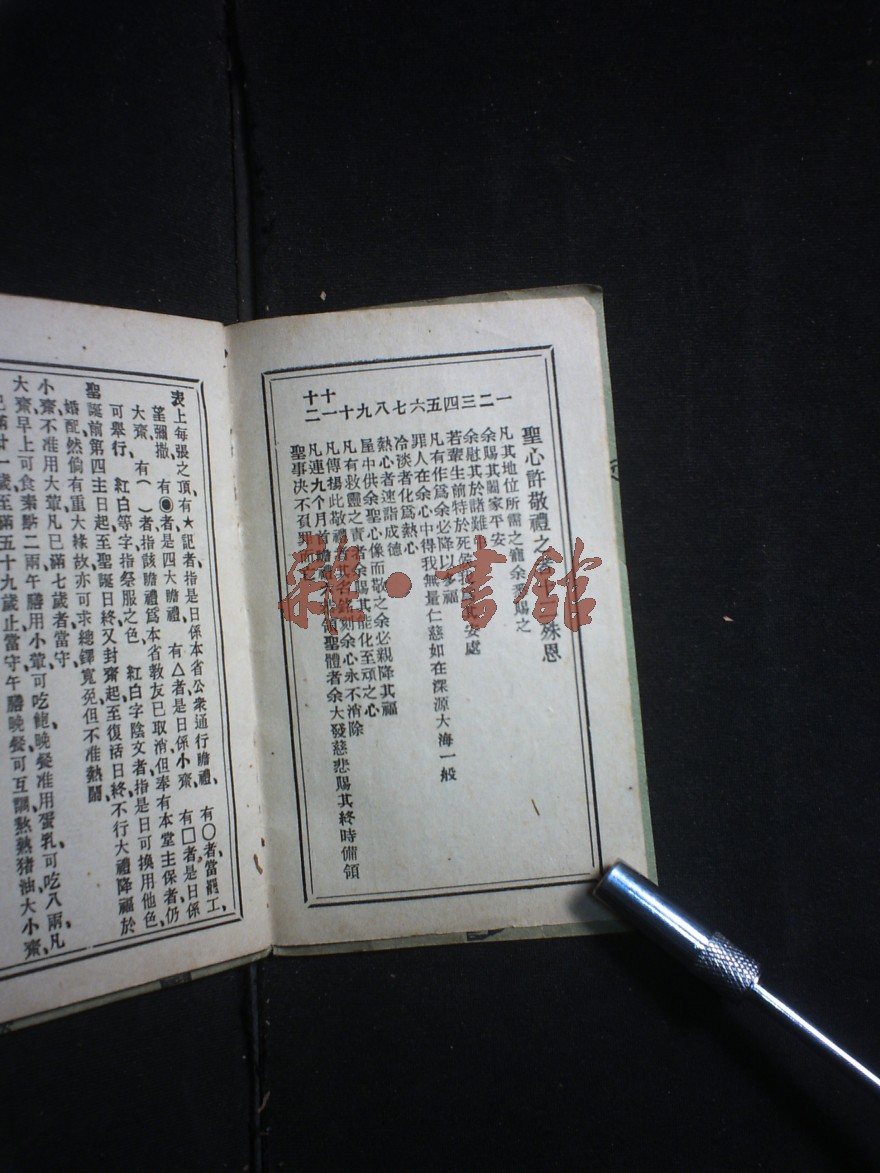 聖心許敬禮之 殊恩
一 凡其地位所需之寵余悉賜之
二 余賜其闔家平安
三 余慰其於諸難
四 若輩生前特於死候 其安處
五 凡有作爲余必降以多福
六 罪人在余心中得我無量仁慈如在深源大海一般
七 冷淡者化爲熱心
八 熱心者速詣成德
九 屋中供余聖心像而敬之余必親降其福
十 凡有救靈之責者余賜其能化至頑之心
十一 凡傳揚此敬禮者其名銘刻余心永不消除
十二 凡連九个月首瞻禮 領聖體者余大發慈悲賜其終時備領
聖事决不負罪而
表上每張之頂有★記者、指是日係本省公衆通行瞻禮、 有〇者當罷工、
望彌撒、 有◉者是四大瞻禮、 有△者是日係小齋、 有□者是日係
大齋、 有( )者指該瞻禮爲本省教友已取消但奉有本堂主保者仍
可舉行、 紅白等字指祭服之色、 紅白字陰文者、指是日可換用他色、
聖誕前第四主日起至聖誕日終又封齋起至復活日終不行大禮降福於
婚配然倘有重大緣故亦可求總鐸寬免但不准熱鬧、
小齋不准用大葷凡已滿七歲者當守、
大齋早上可食素點二兩午膳用小葷可吃飽晚餐准用蛋乳可吃八兩凡
已滿廿一歲至滿五十九歲止當守午膳晚餐可互調熬熟猪油大小齋、
雜·書館